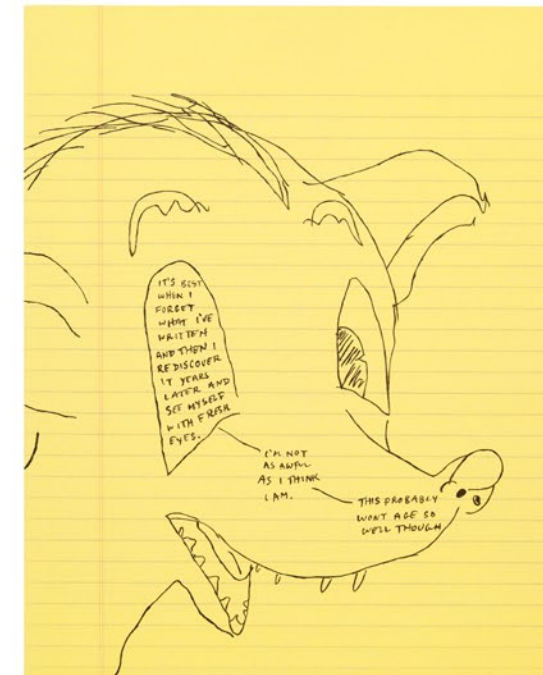 IT'S BEST
WHEN I
FORGET
WHAT I'VE
WRITTEN
AND THEN I
REDISCOVER
IT YEARS
LATER AND
SEE MYSELF
WITH FRESH
EYES.
I'M NOT
AS AWFUL
AS I THINK
I AM.
THIS PROBABLY
WONT AGE SO
WELL THOUGH